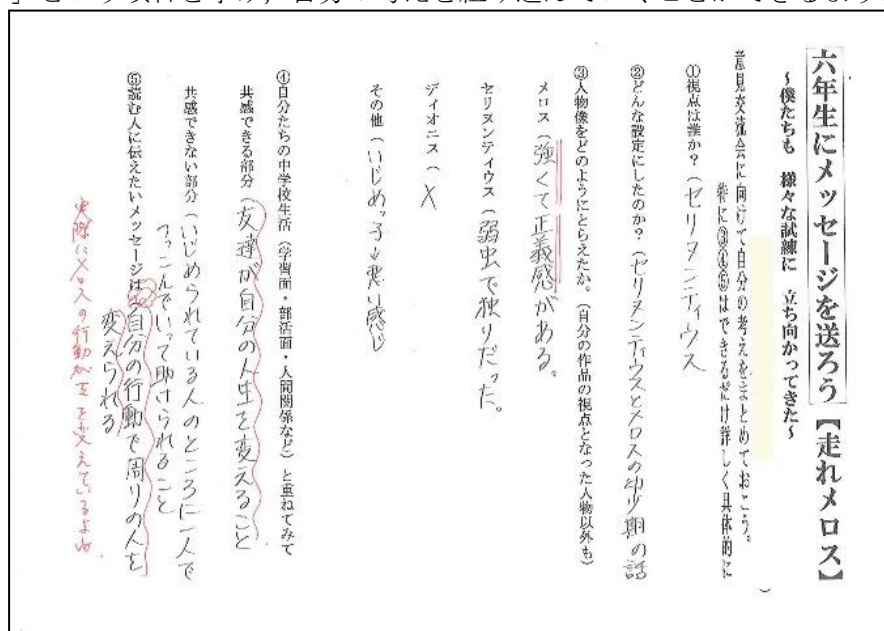 六年生にメッセージを送ろう【走れメロス】
~僕たちも 様々な試練に 立ち向かってきた~
意見交流会に向けて自分の考えをまとめておこう。
特に③④⑤はできるだけ詳しく具体的に
①視点は誰か?(セリヌンティウス )
②どんな設定にしたのか?(セリヌンティウスとメロスの幼少期の話
③人物像をどのようにとらえたか。(自分の作品の視点となった人物以外も)
メロス(強くて正義感がある。
セリヌンティウス(弱虫で独りだった。
ディオニス(X
その他(いじめっ子→悪い感じ
④自分たちの中学校生活(学習面・部活面・人間関係など)と重ねてみて
共感できる部分(友達が自分の人生を変えること
共感できない部分(いじめられている人のところに一人で
つっこんでいって助けられること
⑤読む人に伝えたいメッセージは自分の行動で周りの人を
変えられる
実際にメロスの行動が を変えているよね